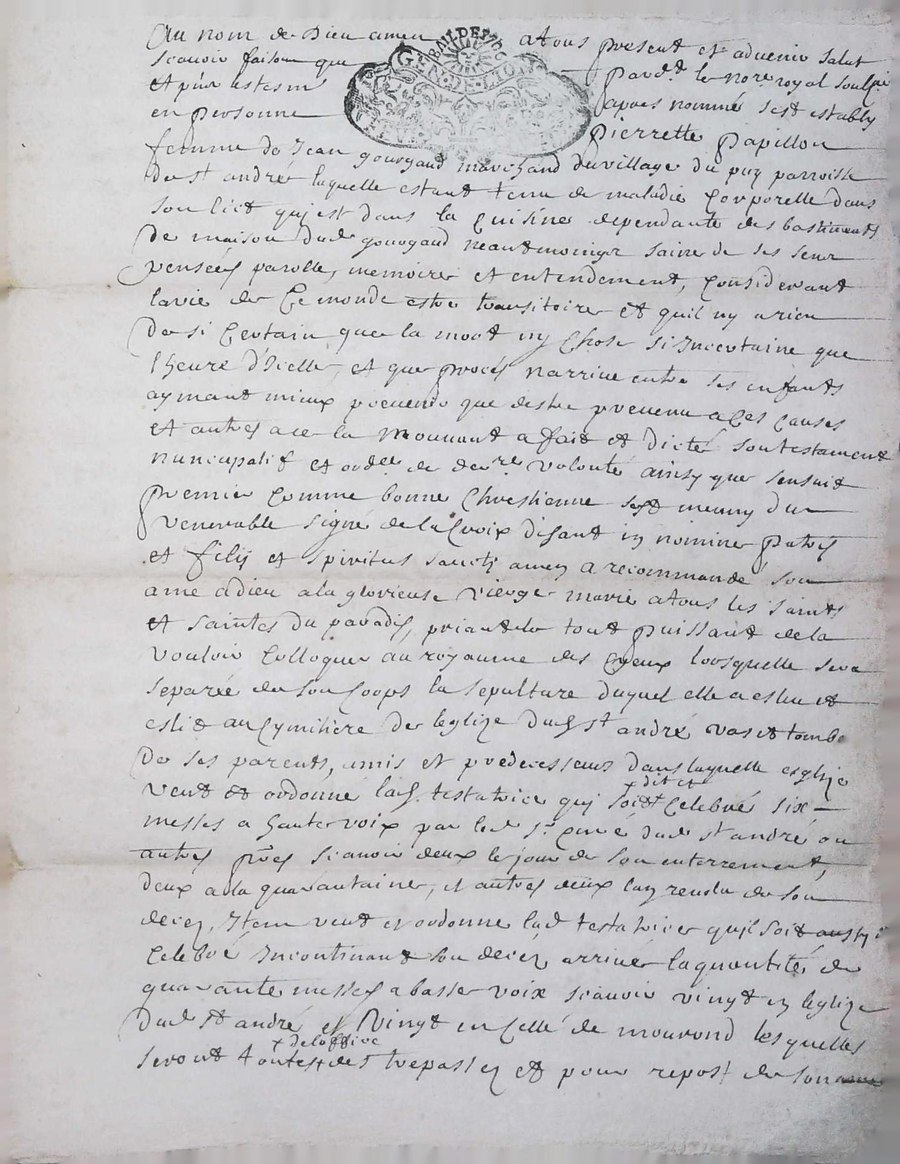 Au nom de Dieu amen atous present et advenir salut
scavoir faisons que pard.t le no.re royal soubs.né
et p̃ns astesm̃s apres nommé sest estably
en personne Pierrette Papillon
GEN DE LION
femme de Jean gourgaud marchand du village du puy parroisse
de st andré laquelle estant tenu de maladie Corporelle dans
son lict quj est dans la Cuisine dependante des bastiments
de maison dud gourgaud neantmoingz saine de ses sens
pensées parolle, memoire et entendement, Considerant
la vie de Ce monde estre transitoire et quil ny a rien
de si Certain que la mort ny Chose si Incertaine que
lheure d'Icelle, et que procés narrive entre ses enfants
aymant mieux prevenir que destre prevenu a Ces Causes
et autres a ce la mouvant a fait et dicté son testament
nuncupatif et ord.ce de der.re volonté ainsy que sensuit
premier Comme bonne Chrestienne sest muny du
venerable signe de la Croix disant in nomine Patris
et filij et spiritus sancti amen a recommandé son
ame a dieu a la glorieuse vierge marie atous les saints
et saintes du paradis, priant le tout puissant de la
vouloir Colloquer au royaume des Cyeux lorsquelle sera
separée de son Corps la sepulture duquel elle a esleu et
eslit au Cymitiere de leglize dud st andré vas et tombe
de ses parents, amis et predecesseurs dans laquelle esglize
veut et ordonne lad. testatrice quj soit + dit et Celebré six
messes a haute voix par led s.r Curé dud st andré ou
autres p̃res scavoir deux le jour de son enterrement,
deux a la quarantaine, et autres deux lan revolu de son
decez, Item veut et ordonne lad testatrice quil soit
Celebré Incontinant son decez arrivé la quantité de
quarante messes a basse voix scavoir vingt en leglize
dud st andré et vingt en Celle de mournd lesquelles
seront toutes + de loffice des trepassez et pour repost de son